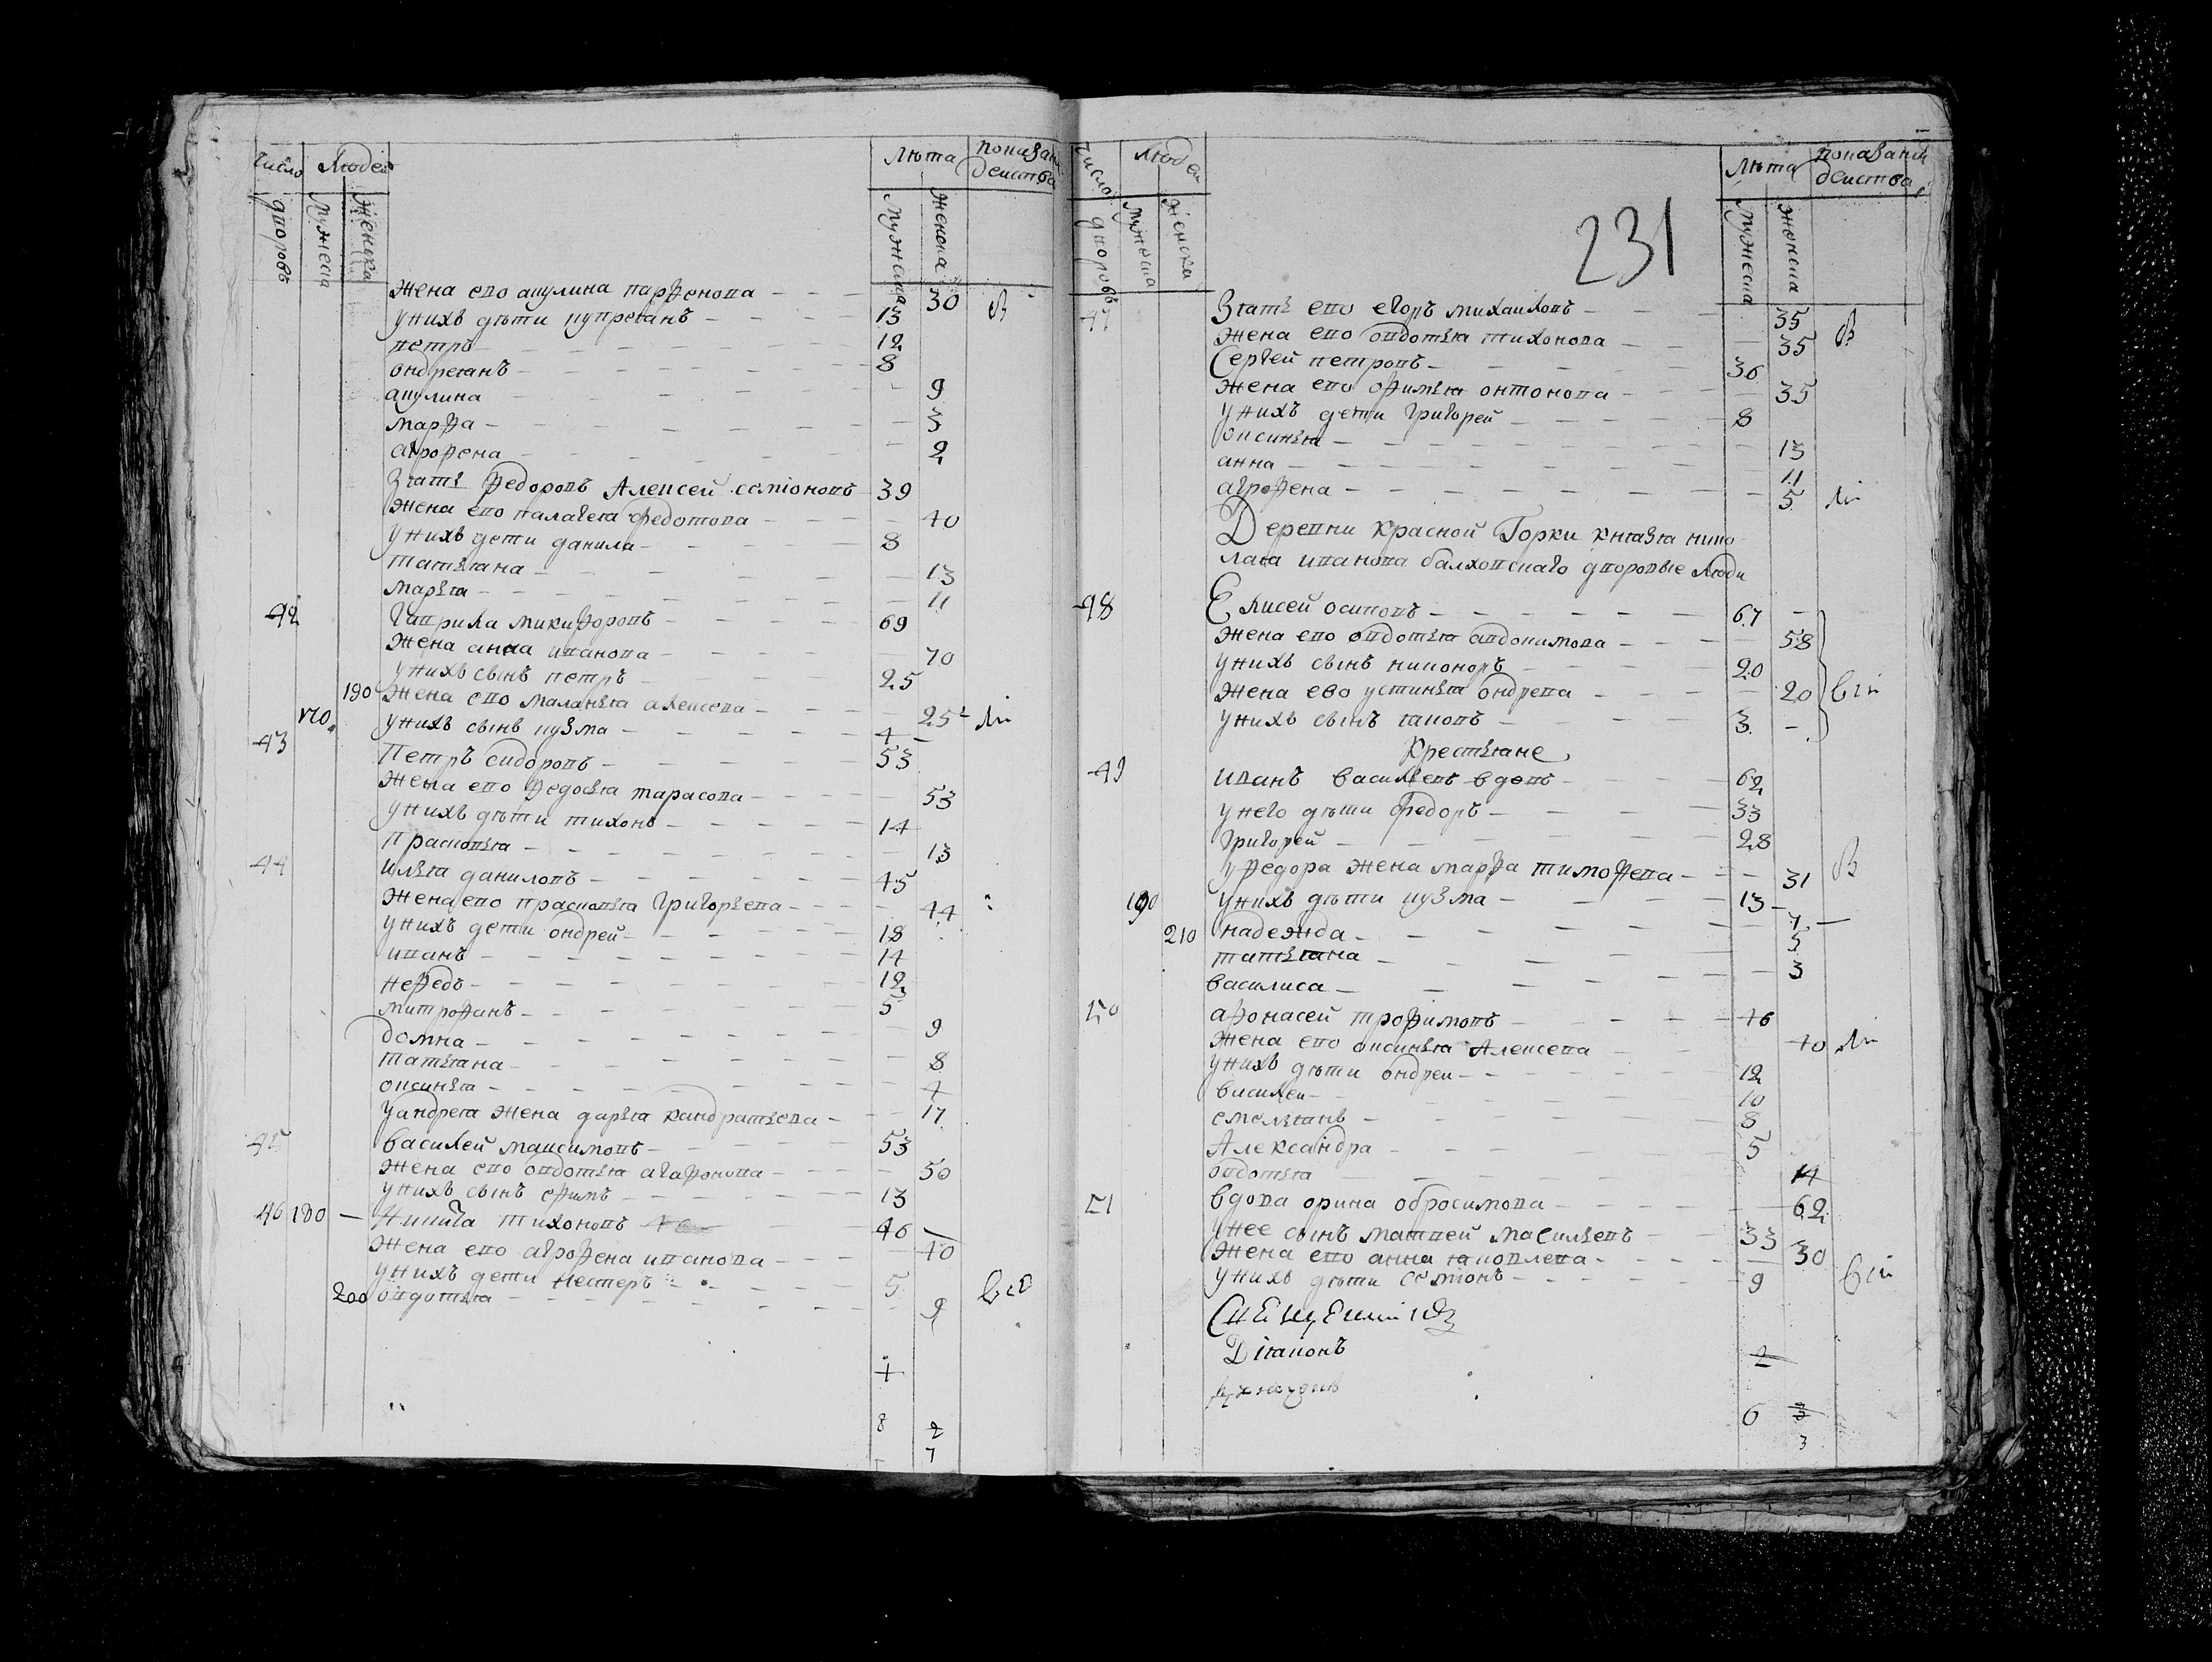 Число Людей Лѣта Показани действа
дворовъ мужеска женска мужеска женска
Жена ево акулина парфенова 30 В
у нихъ дѣти купреянъ 13
петръ 12
ондреянъ 8
акулина 9
марфа 3
агрофена 2
Зять федоровъ Алексей семіоновъ 39
Жена ево палагея федотова 40
у нихъ дети данила 8
татьяна 13
марья 11
42 Гаврила микифоровъ 69
Жена анна иванова 70
у нихъ сынъ петръ 25
190 Жена ево маланья алексева 25
170 у нихъ сынъ кузма 4
43 Петръ сидоровъ 53
Жена ево федосья тарасова 53
у нихъ дѣти тихонъ 14
прасковья 13
44 илья даниловъ 45
Жена ево прасковья григорьева 44
у нихъ дети ондрей 18
иванъ 14
нефедъ 12
митрофанъ 5
домна 9
татьяна 8
оксинья 4
у андрея жена дарья кандратьева 17
45 василей максимовъ 53
Жена ево овдотья агафонова 50
у нихъ сынъ ефимъ 13
46 180 Никита тихоновъ 46
Жена ево агрофена иванова 40
у нихъ дети нестеръ 5
200 овдотья 9
8
7
Число Людей Лѣта показани действа
дворовъ мужеска женска мужеска женска
231
47 Зять ево егоръ михаиловъ 35 В
Жена ево овдотья тихонова 35
Сергей петровъ 36
Жена ево офимья онтонова 35
у нихъ дети григорей 8
оксинья 13
анна 11
агрофена 5
Деревни Красной Горки князя нико
лая иванова балховскаго дворовые люди
48 Елисей осиповъ 67
Жена ево овдотья авдокимова 58
у нихъ сынъ никоноръ 20
Жена ево устинья ондрева 20
у нихъ сынъ яковъ 3
Крестьяне
49 иванъ васильевъ вдовъ 62
у него дѣти федоръ 33
григорей 28
у федора жена марфа тимофева 31 В
190 у нихъ дѣти кузма 13
210 надежда 7
татьяна 5
василиса 3
50 афонасей трофимовъ 46
Жена ево оксинья Алексева 40
у нихъ дѣти ондреи 12
василеи 10
емельянъ 8
Александра 5
овдотья 14
51 вдова орина обросимова 62
у нее сынъ матвей васильевъ 33
Жена ево анна яковлева 30
у нихъ дѣти семіонъ 9
Діаконъ 2
6
3